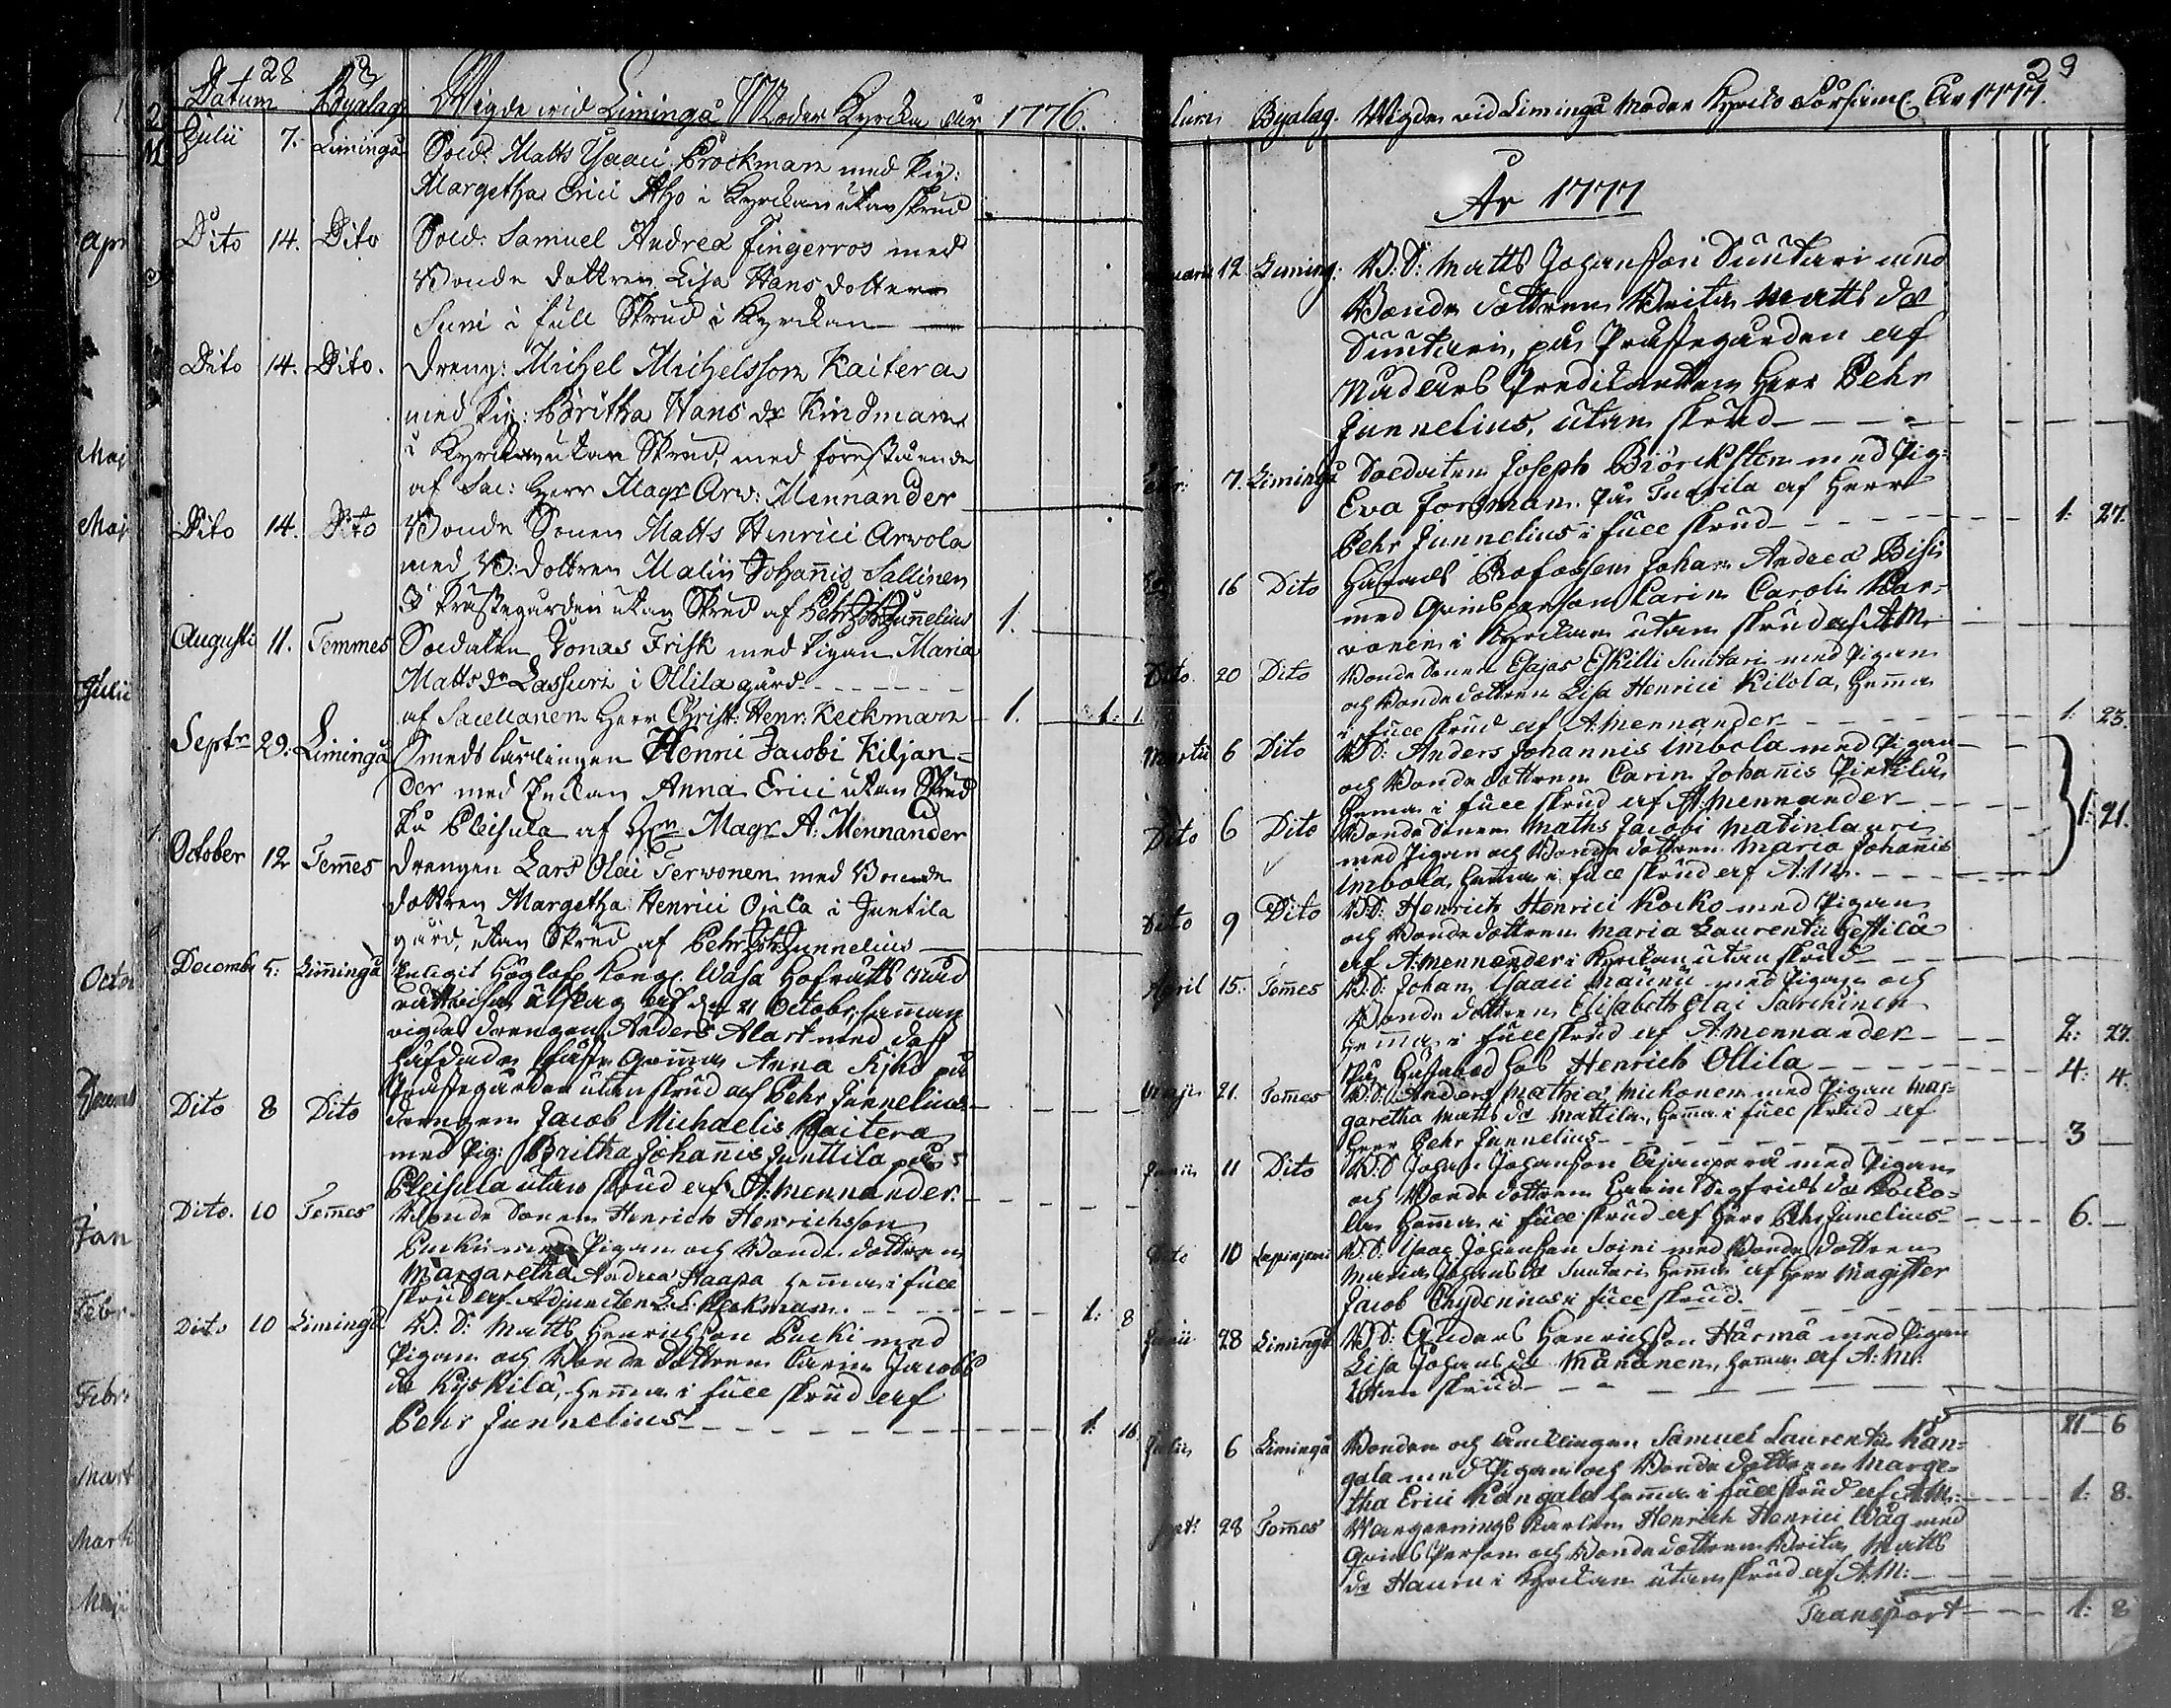 28
Datum Byalag Wigde wid Limingå Moder Kyrcka År 1776.
Julii 7. Limingå Sold: Matts Isaaci Brockman med Pig:
Margetha Erici Aho i Kyrckan utan skrud
Dito 14. Dito Sold: Samuel Andreæ Fingerroos med
Bonde dottren Lisa Hans dotter
Suni i full Skrud i Kyrckan
Dito 14. Dito. Dreng: Michel Michelsson Kaitera
med Pig: Britha Hans dr Kindman
i Kyrckan utan Skrud, med förestående
af Sac: Herr Magr Arv: Mennander
Dito 14. Dito Bonde Sonen Matts Henrici Arvola
med B: dottren Malin Johannis Sallinen
i Prästegården utan Skrud af Pehr Junnelius 1.
Augusti 11. Temmes Soldaten Jonas Frisk med Pigan Maria
Matts dr Lassuri i Ollila gård
af Sacellanen Herr Christ: Henr: Keckman 1. 1: 1.
Septr 29. Limingå Smeds lärlingen Henric Jacobi Kiljan=
der med Enkan Anna Erici utan Skrud
På Pleisula af Hrn Magr A: Mennander
October 12 Temmes Drengen Lars Olai Tervonen med Bonde
dottren Margetha Henrici Ojala i Juntila
gård, utan Skrud af Pehr Junnelius
Decemb 5: Limingå Enligit Höglofl. Kongl. Wasa Hofrätts
utslag af d. 21 Octobr, samman
vigdes drengen Anders Alart med dess
häfdade fäste qwinna Anna Sjko på
Prästegården utan skrud af Pehr Junnelius
Dito 8 Dito Drengen Jacob Michaelis Kaitera
med Pig: Britha Johannis Junttila på
Pleisula utan skrud af A: Mennander.
Dito. 10 Temes Bonde Sonen Henrich Henrichsson
Pucki med Pigan och Bonde dottren
Margaretha Andreæ Haapa hemma i full
skrud af Adjuncten Keckman. 1: 8
Dito 10 Limingå B: S: Matts Henrichsson Pucki med
Pigan och Bonde dottren Carin Jacobs
dr Kyskilä, hemma i full skrud af
Pehr Junnelius 1: 16.
29
Byalag. Wigde vid Limingå Moder Kyrcko Församl. År 1777.
År 1777
12 Liming: B: S: Matts Johansson Suutari med
Bonde dottren Brita Matts dr
Suutari, på Prästegården af
Nådårs Predikanten Herr Pehr
Junnelius, utan skrud
Febr: 7. Limingå Soldaten Joseph Biörcksten med Pig:
Eva Forsman på Tuorila af Herr
Pehr Junnelius i full skrud 1: 27.
16 Dito Härads Profossen Johan Andreæ Bisi
med Qvinspersson Carin Caroli Kar=
vonen i Kyrckan utan skrud af A: M.
Dito. 20 Dito Bonde Sonen Esajas Eskilli Suutari med Pigan
och Bonde dottren Lisa Henrici Kilola, hemma
i full skrud af A: Mennander 1: 23.
Martii 6 Dito B: S: Anders Johannis Imbola med Pigan
och Bonde dottren Carin Johannis Pirkilä
hemma i full skrud af A: Mennander
Dito 6 Dito Bonde Sonen Maths Jacobi Matinlauri
med Pigan och Bonde dottren Maria Johannis
Imbola, hemma i full skrud af A: M. 1: 21.
Dito 9 Dito B: S: Henrich Henrici Kocko med Pigan
och Bonde dottren Maria Laurentii Hettilä
af A: Mennander i Kyrckan utan skrud
April 15. Temmes B: S: Johan Isaaci Mauriu med Pigan och
Bonde dottren Elisabeth Olai Savehinen
hemma i full skrud af A: Mennander 2: 27.
På Gästabud hos Henrich Ollila 4: 4.
Maji 21. Temmes B: S: Anders Mathiæ Mickonen med Pigan Mar=
garetha Matts dr Mattila, hemma i full skrud af
Herr Pehr Junnelius 3
Junii 11 Dito B: S: Johan Johansson med Pigan
och Bonde dottren Carin Sigfrids dr Pocko=
la hemma i full skrud af Herr Pehr Junelius 6.
Dito 10 B: S: Isaac Johansson Soini med Bonde dottren
Maria Johans dr Suutari hemma af Herr Magister
Jacob Chydenius i full skrud.
Junii 28 Limingå B: S: Anders Henrichsson Härmä med Pigan
Lisa Johans dr Manänen, hemma af A: M:
Utan skrud
21 6
Julii 6 Limingå Bonden och Enklingen Samuel Laurentii Kan=
gala med Pigan och Bonde dottren Marge=
tha Erici Kangala hemma i full skrud af A: M: 1: 8.
28 Temmes Wargerings Karlen Henrich Henrici Wåg med
Qvins Person och Bonde dottren Brita Matts
dr Hauru i Kyrckan utan skrud af A: M:
Transport 1: 8
Apr
Maj
Maj
Julii
Octo
Decemb
Jan
Febr.
Febr:
Mart
Marti
Maji